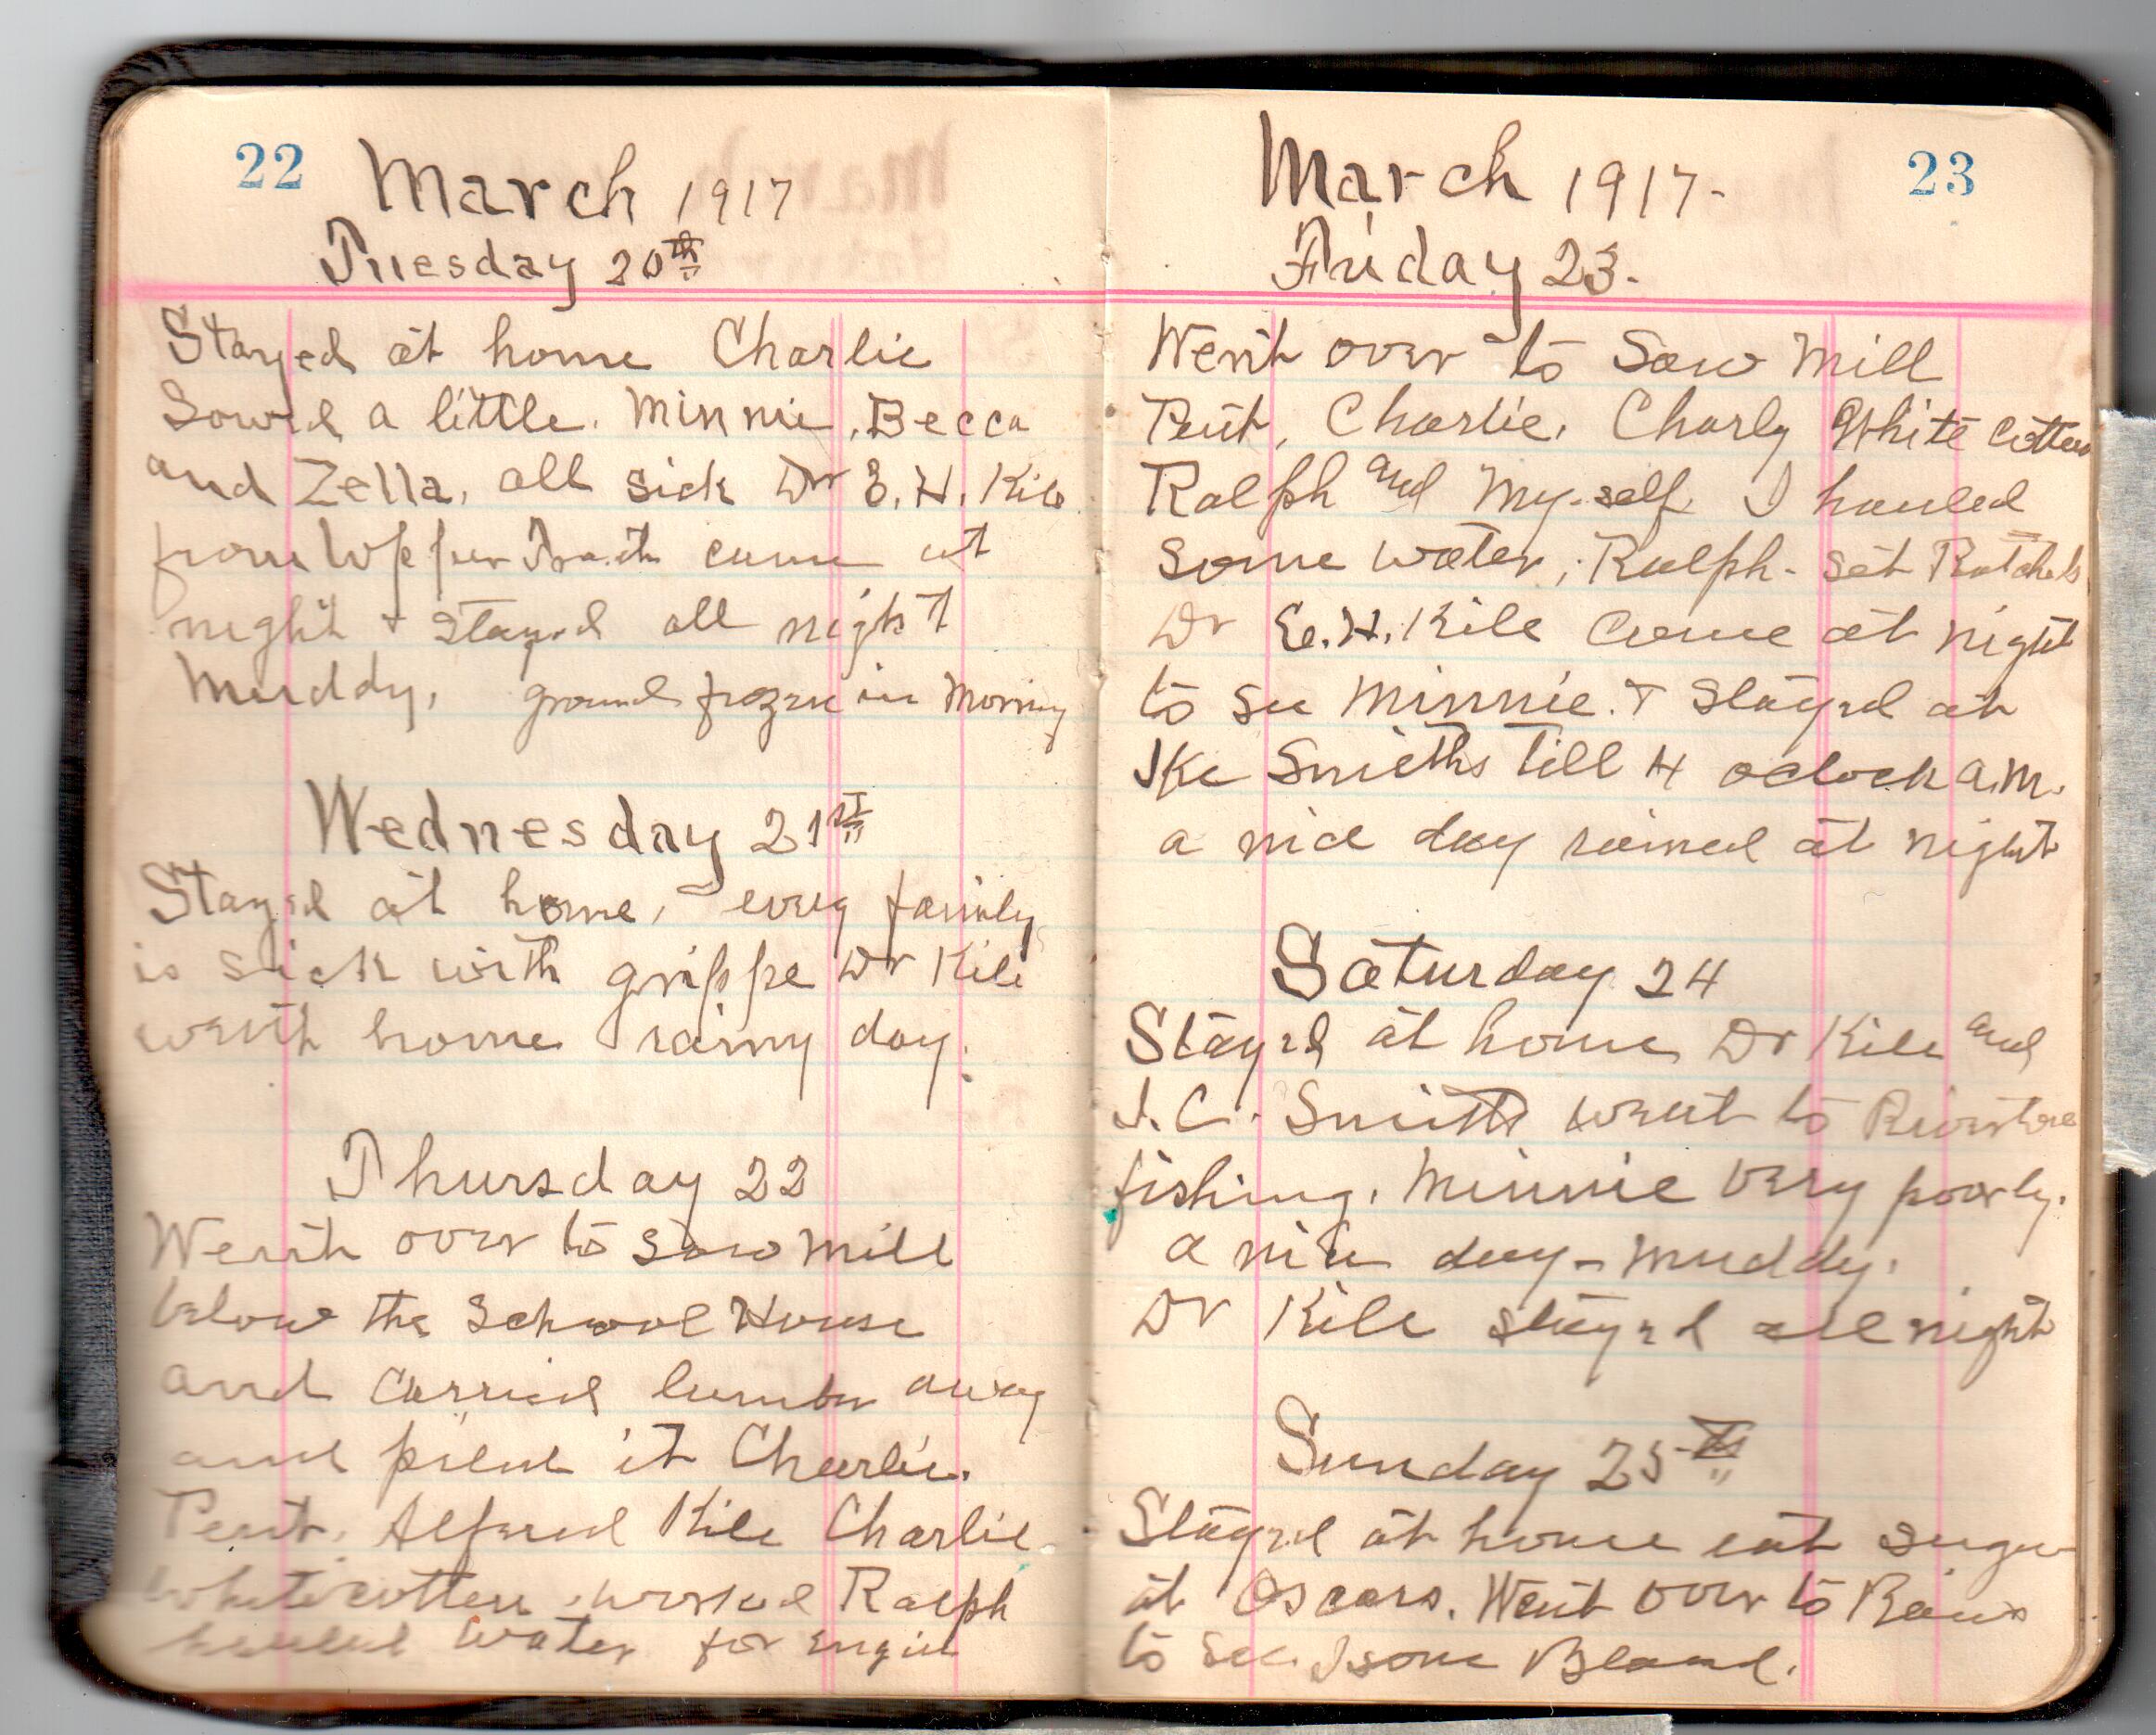 22
March 1917
Tuesday 20th
Stayed at home Charlie
Sowed a little. Minnie, Becca
and Zella, all sick Dr E. H. Kile
from Upper Tract came at
night + stayed all night
Muddy, ground frozen in Morning
Wednesday 21st
Stayed at home, every family
is sick with grippe Dr Kile
went home rainy day.
Thursday 22
Went over to Saw Mill
below the School House
and carried lumber away
and piled it Charlie.
Pent. Alfred Kile Charlie
Whitecotten worked Ralph
hauled water for Engin
23
March 1917-
Friday 23.
Went over to Saw Mill
Pent, Charlie, Charly White cotten
Ralph and My-self I hauled
some water, Ralph- set Ratchets
Dr E. H. Kile came at night
to see Minnie. + Stayed at
Ike Smiths till 4 oclock a.m.
a nice day rained at night
Saturday 24
Stayed at home Dr Kile and
I. C. Smith went to River
fishing. Minnie very poorly.
a nice day - Muddy.
Dr Kile stayed all night
Sunday 25th
Stayed at home eat sugar
at Oscars. Went over to
to see Isom Bland.